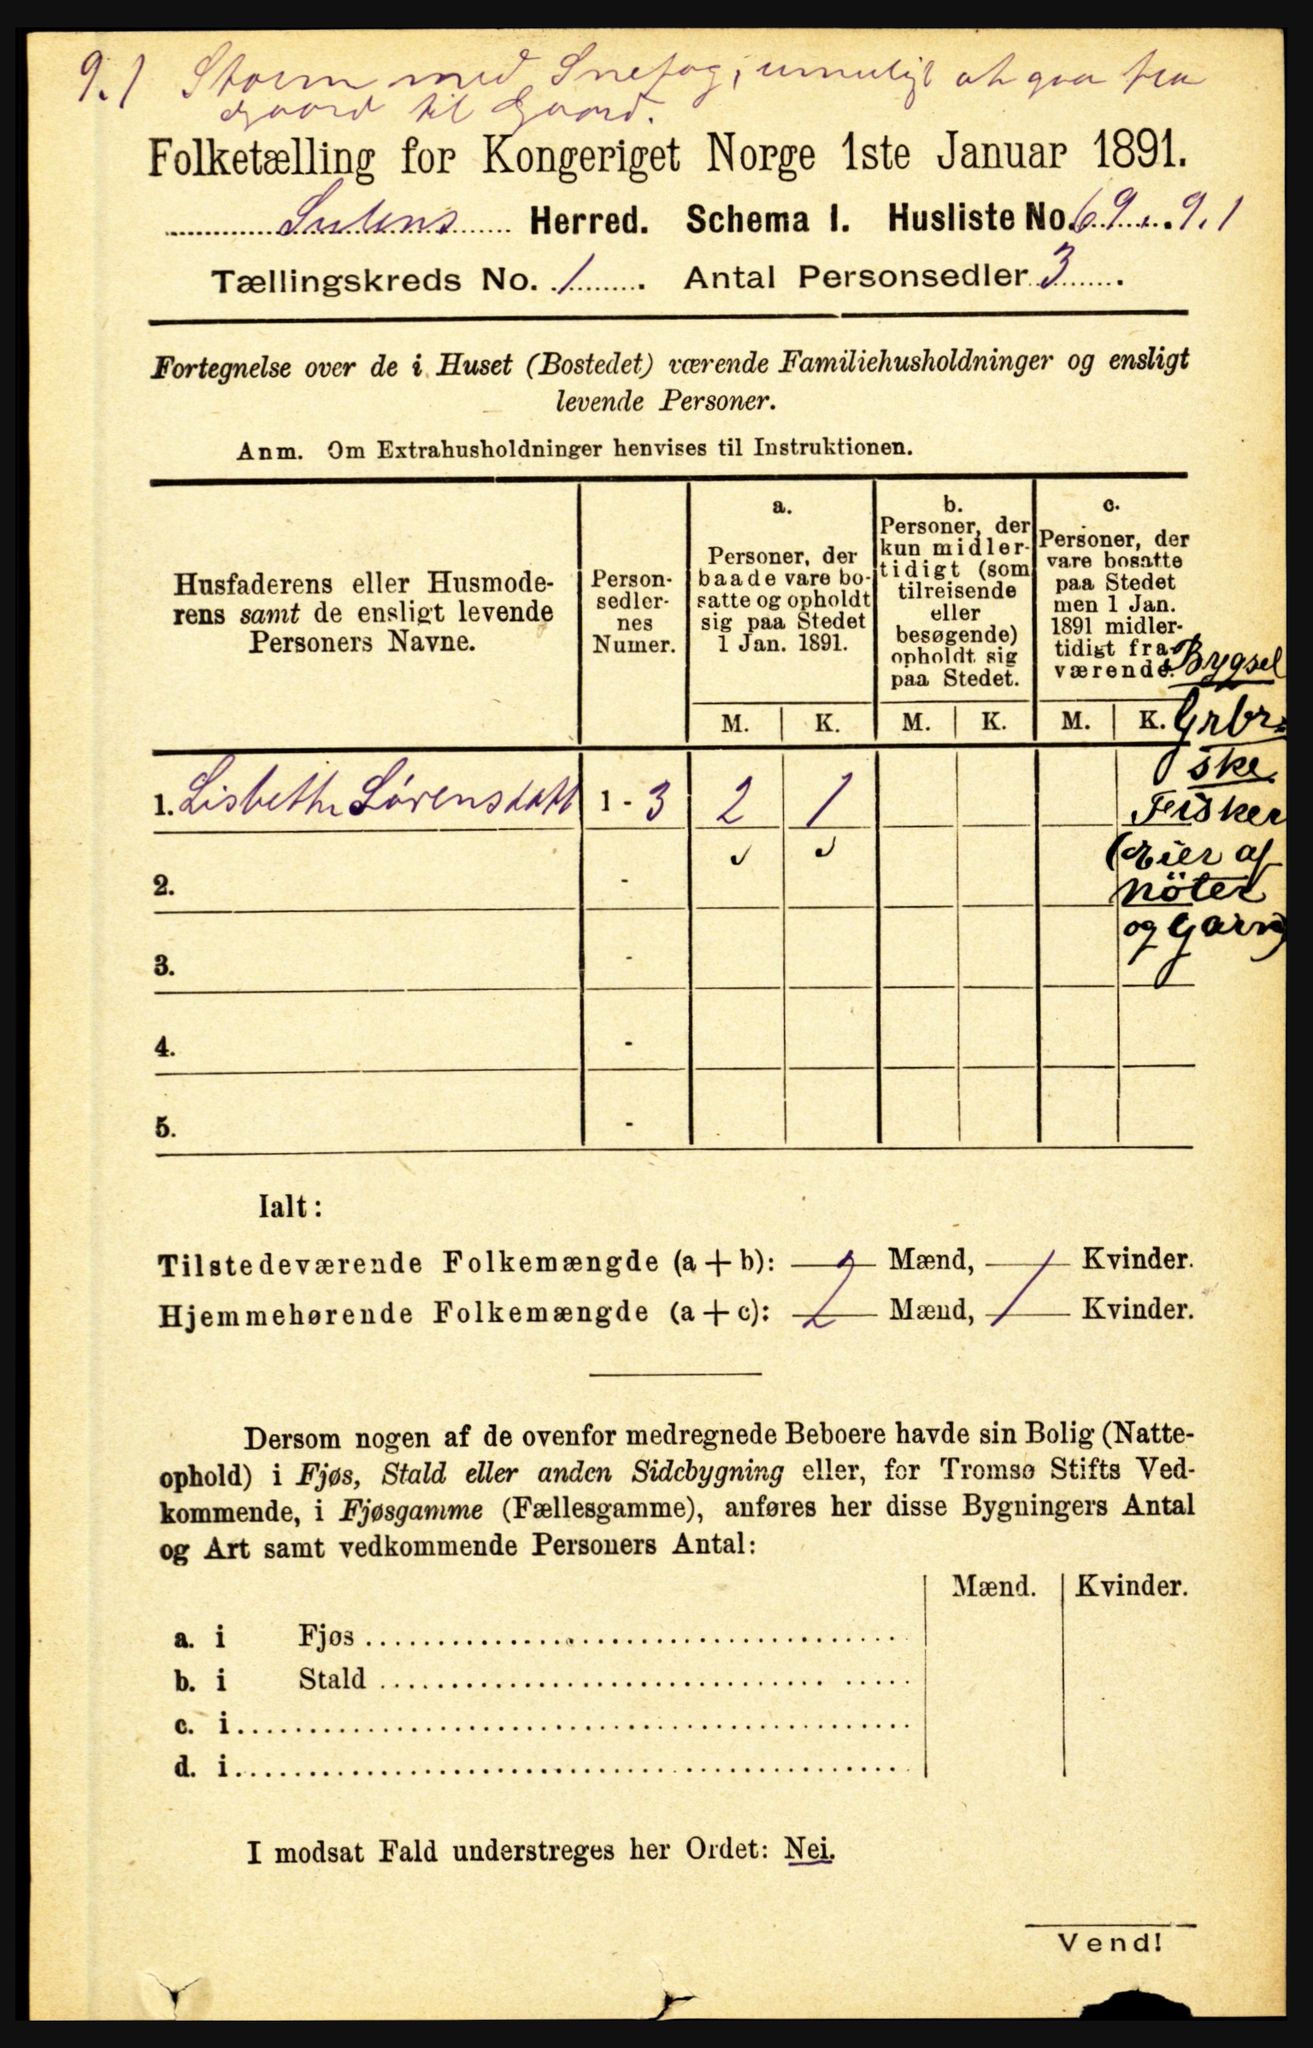 9.1 Storm med Snefog, umuligt at gaa fra
Gaard til Gaard.
Folketælling for Kongeriget Norge 1ste Januar 1891.
Sulens Herred. Schema I. Husliste No. 69. 9.1
Tællingskreds No. 1. Antal Personsedler 3.
Fortegnelse over de i Huset (Bostedet) værende Familiehusholdninger og ensligt
levende Personer.
Anm. Om Extrahusholdninger henvises til Instruktionen.
Husfaderens eller Husmode-
rens samt de ensligt levende
Personers Navne.
Person-
sedler-
nes
Numer.
a.
Personer, der
baade vare bo-
satte og opholdt
sig paa Stedet
1 Jan. 1891.
b.
Personer, der
kun midler-
tidigt (som
tilreisende
eller
besøgende)
opholdt sig
paa Stedet.
c.
Personer, der
vare bosatte
paa Stedet
men 1 Jan.
1891 midler-
tidigt fra-
værende.
M. K. M. K. M. K.
Bygsel
Grbr.
ske
Fisker
(Eier af
Nöter
og Garn)
1. Lisbethe Sørensdatt 1 - 3 2 1
2. -
3. -
4. -
5. -
Ialt:
Tilstedeværende Folkemængde (a + b): 2 Mænd, 1 Kvinder.
Hjemmehørende Folkemængde (a + c): 2 Mænd, 1 Kvinder.
Dersom nogen af de ovenfor medregnede Beboere havde sin Bolig (Natte-
ophold) i Fjøs, Stald eller anden Sidebygning eller, for Tromsø Stifts Ved-
kommende, i Fjøsgamme (Fællesgamme), anføres her disse Bygningers Antal
og Art samt vedkommende Personers Antal:
Mænd. Kvinder.
a. i Fjøs
b. i Stald
c. i
d. i
I modsat Fald understreges her Ordet: Nei.
Vend!